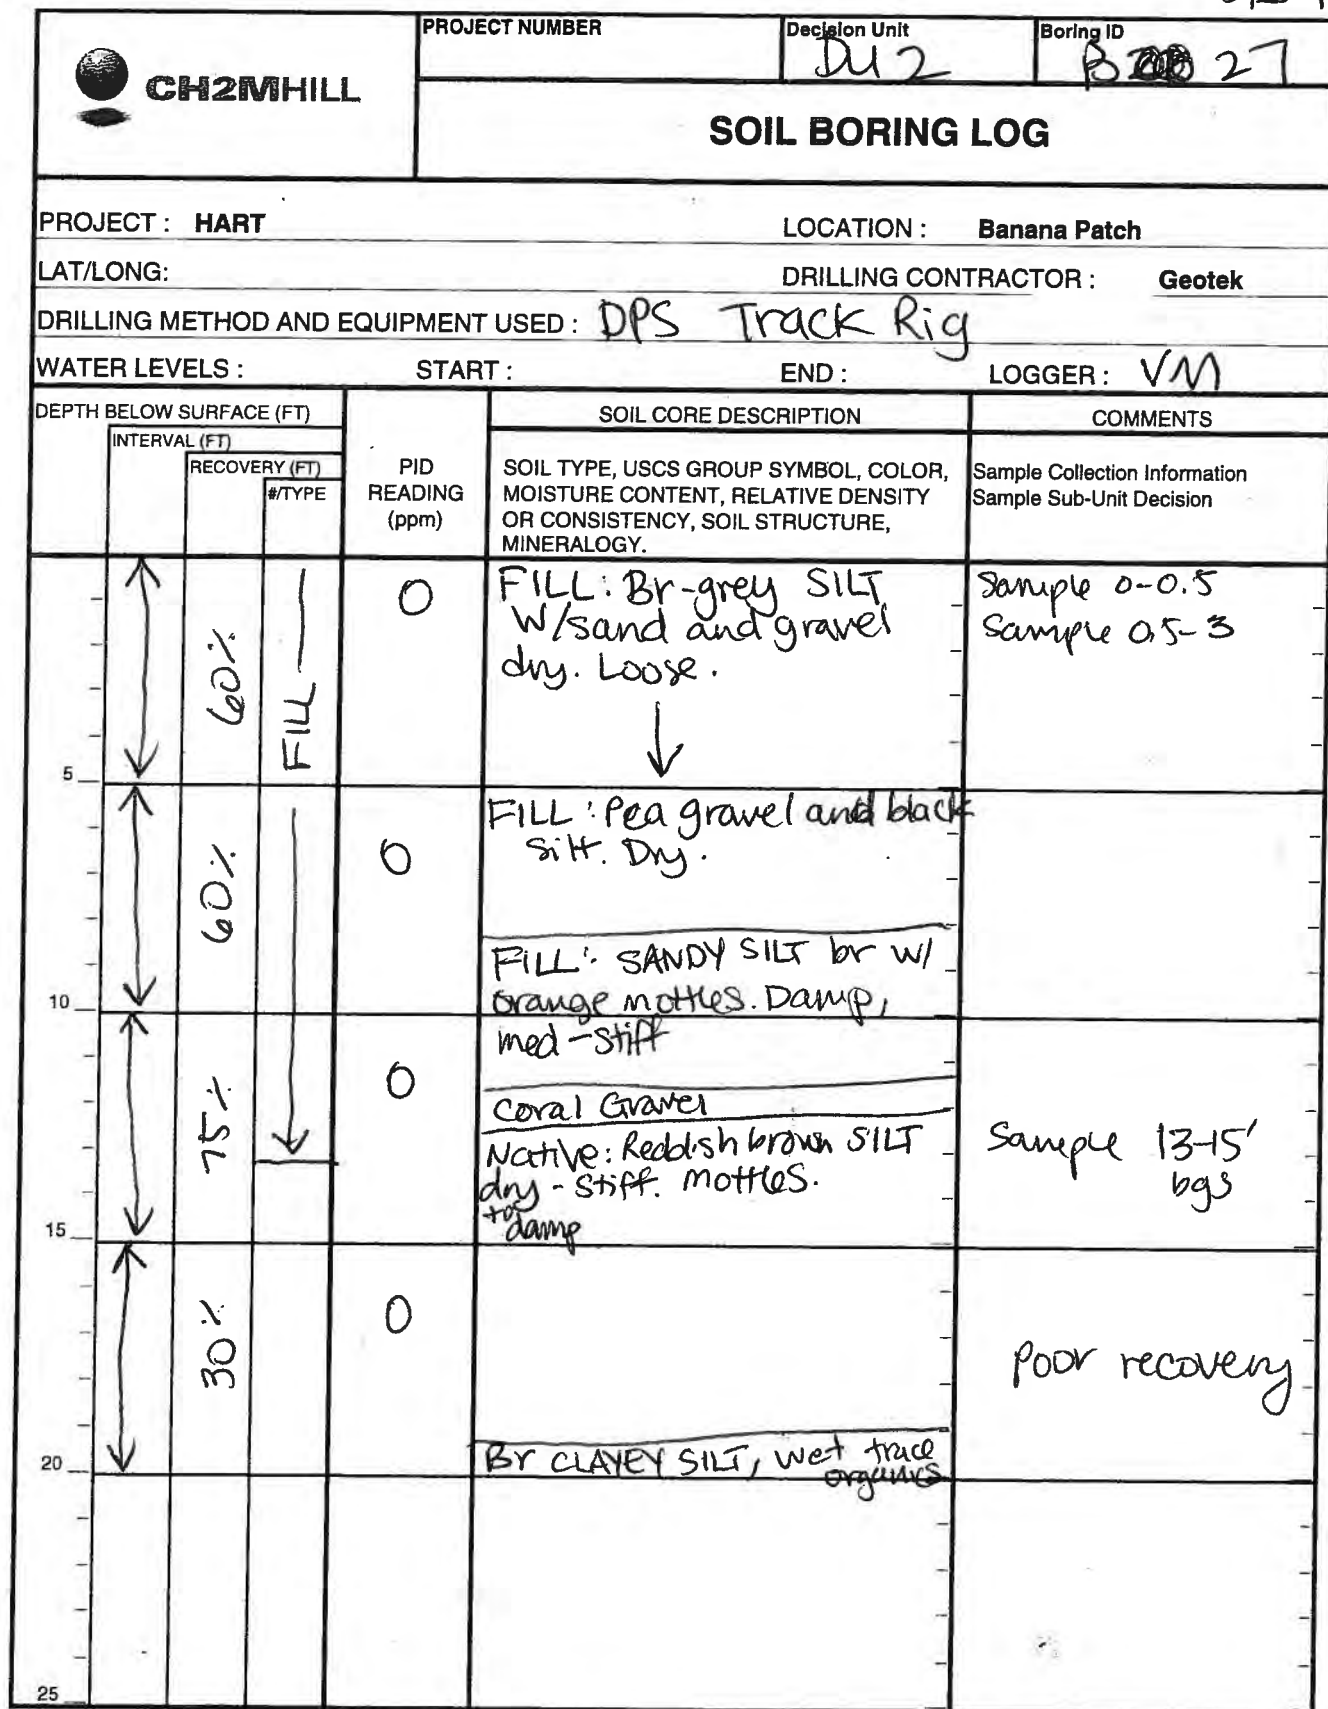 PROJECT NUMBER
Decision Unit
DU 2
Boring ID
B 27
CH2MHILL
SOIL BORING LOG
PROJECT : HART
LOCATION : Banana Patch
LAT/LONG:
DRILLING CONTRACTOR : Geotek
DRILLING METHOD AND EQUIPMENT USED : DPS Track Rig
WATER LEVELS :
START :
END :
LOGGER : VM
DEPTH BELOW SURFACE (FT)
INTERVAL (FT)
RECOVERY (FT)
#/TYPE
PID
READING
(ppm)
SOIL CORE DESCRIPTION
SOIL TYPE, USCS GROUP SYMBOL, COLOR,
MOISTURE CONTENT, RELATIVE DENSITY
OR CONSISTENCY, SOIL STRUCTURE,
MINERALOGY.
COMMENTS
Sample Collection Information
Sample Sub-Unit Decision
60%
FILL
0
FILL: Br-grey SILT
w/sand and gravel
dry. Loose.
Sample 0-0.5
Sample 0.5-3
5
60%
0
FILL: Pea gravel and black
silt. Dry.
FILL: SANDY SILT br w/
orange mottles. Damp,
10
med-stiff
75%
0
Coral Gravel
Native: Reddish brown SILT
dry - Stiff. mottles.
to
damp
Sample 13-15'
bgs
15
30%
0
Poor recovery
Br CLAYEY SILT, wet trace
organics
20
25